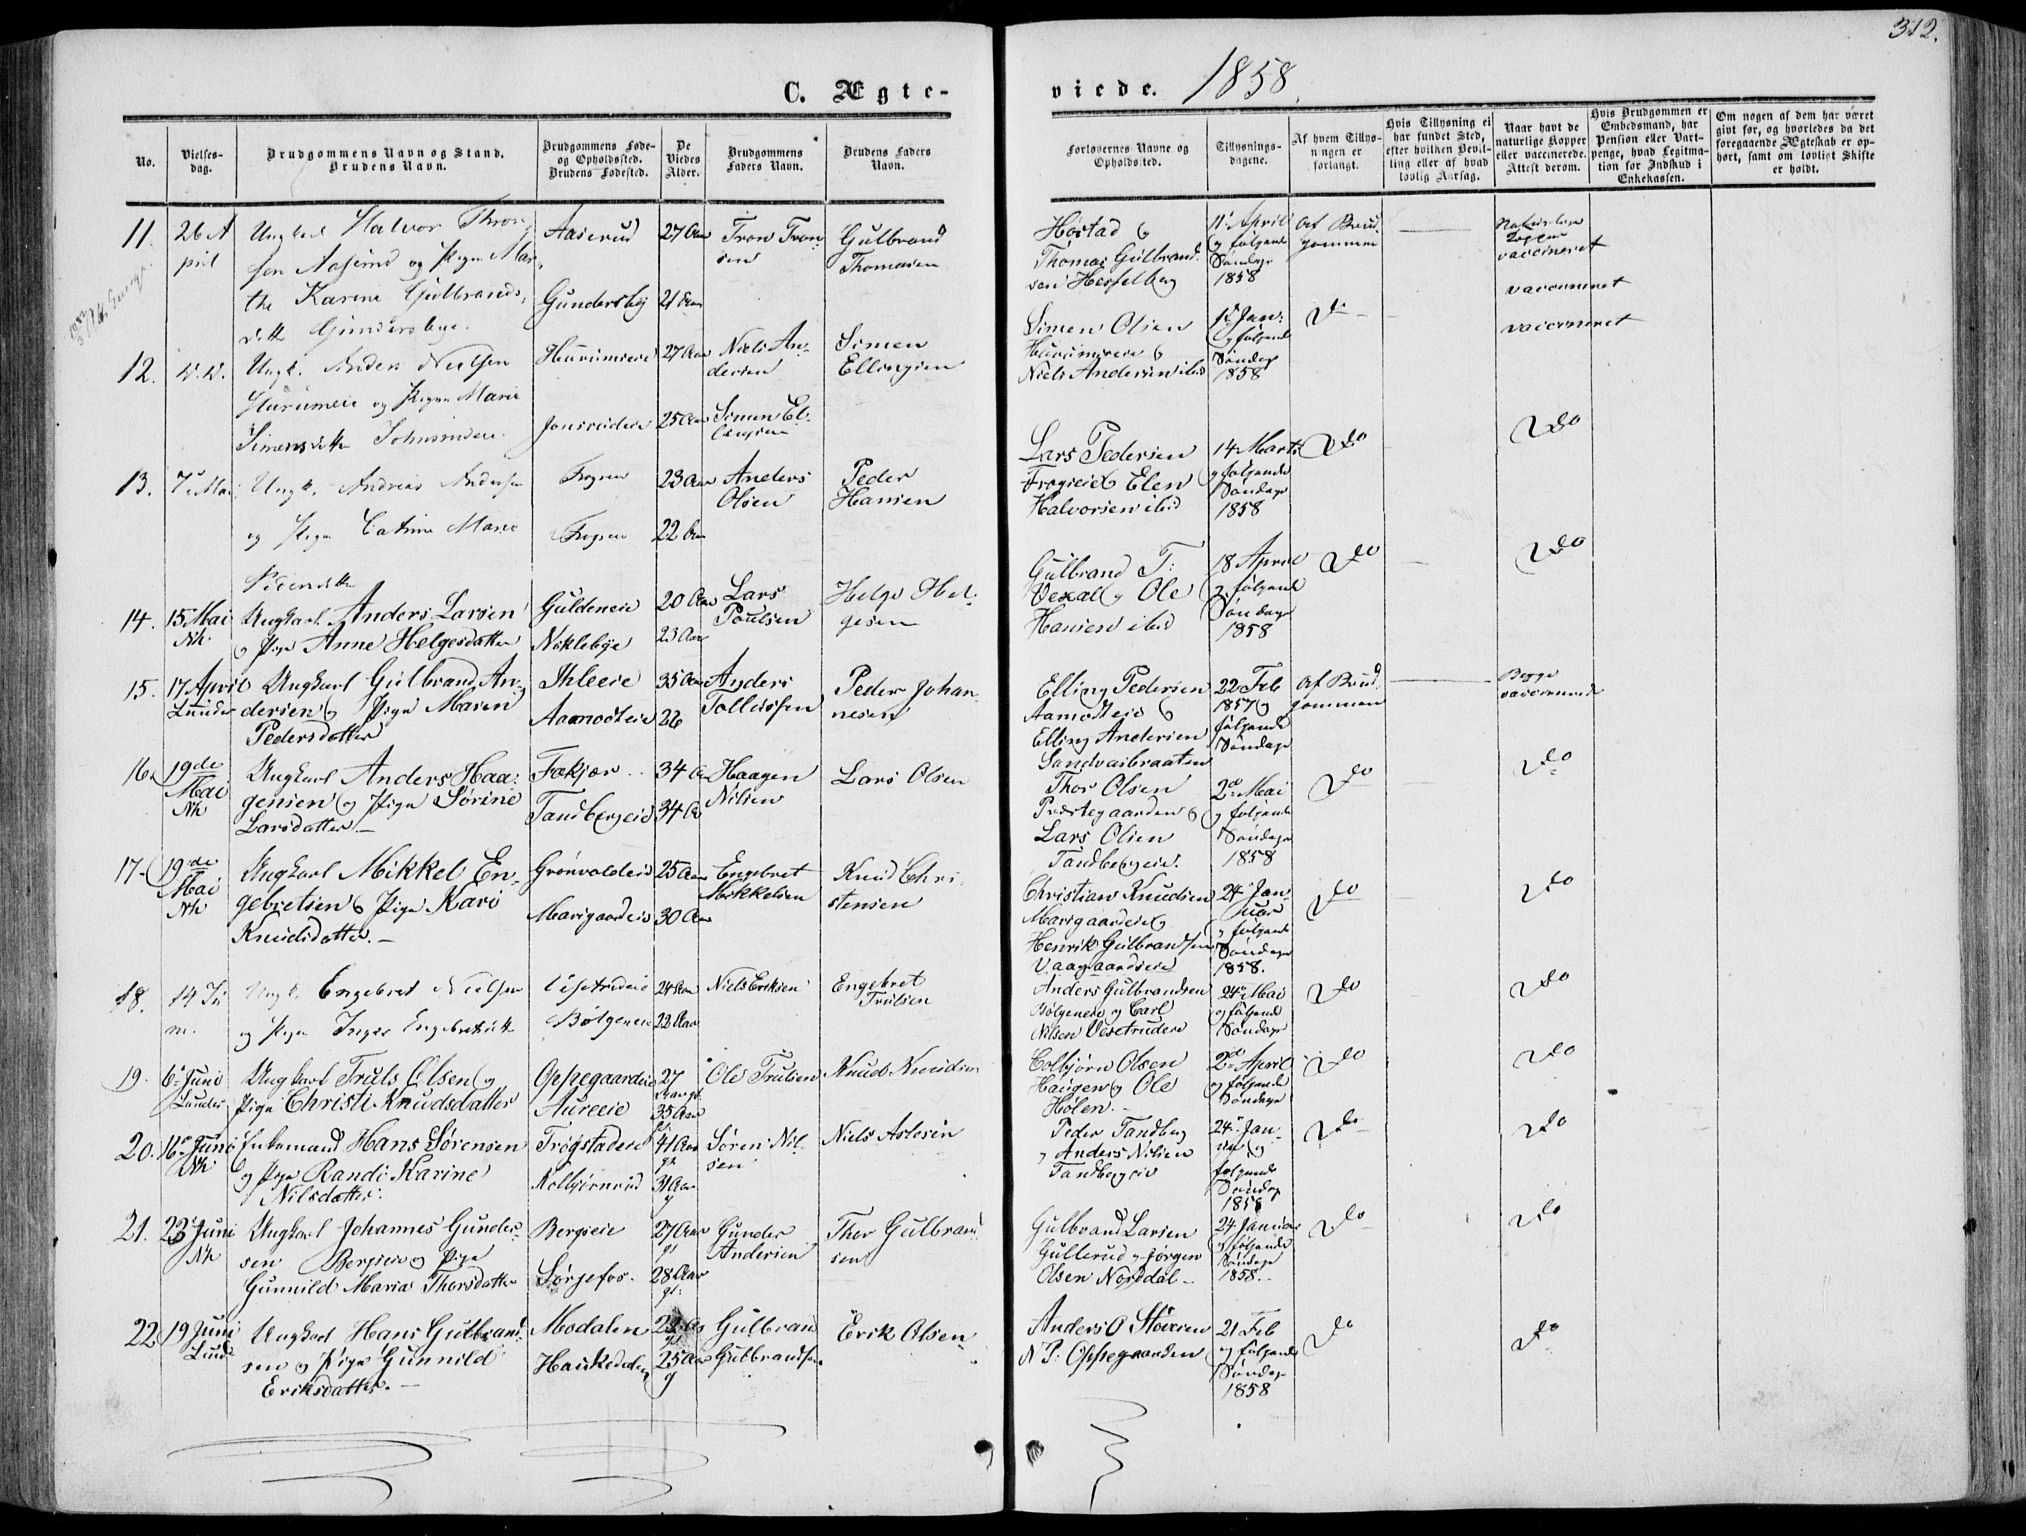 312.
C. Ægte-
viede. 1858.
No.
Vielses-
dag.
Brudgommens Navn og Stand.
Brudens Navn.
Brudgommens Føde-
og Opholdssted.
Brudens Fødested.
De
Viedes
Alder.
Brudgommens
Faders Navn.
Brudens Faders
Navn.
Forlovernes Navne og
Opholdssted.
Tillysnings-
dagene.
Af hvem Tillys-
ningen er
forlangt.
Hvis Tillysning ei
har fundet Sted,
efter hvilken Bevil-
ling eller af hvad
lovlig Aarsag.
Naar havt de
naturlige Kopper
eller vaccinerede.
Attest derom.
Hvis Brudgommen er
Embedsmand, har
Pension eller Vart-
penge, hvad Legitima-
tion for Indskud i
Enkekassen.
Om nogen af dem har været
gift før, og hvorledes da det
foregaaende Ægteskab er op-
hørt, samt om lovligt Skifte
er holdt.
11.
26 A
pril
Ungkarl Halvor Thron
sen Aaserud og Pigen Mar-
the Karine Gulbrands-
dtt. Gundersbye.
Aaserud
Gundersby
27 Aar
21 Aar
Tron Tron
sen
Gulbrand
Thomasen
Høstad og
Thomas Gulbrand-
sen Hesselberg
11 April
og følgende
Søndage
1858
Af Brud
gommen
Naturlige
Kopper
vaccineret
vaccineret
12.
Ungk. Anders Nielsen
Hurumeie og Pigen Marie
Simensdtt. Johnsrudeie.
Hurumeie
Jonsrudeie
27 Aar
25 Aar
Niels An-
dersen
Simen El-
lingsen
Simen
Ellingsen
Simen Olsen
Hurumeie og
Niels Andersen ibid
Jan:
og følgende
Søndage
1858
Do
vaccineret
13.
7 Mai
Ungk. Andreas Andersen
og Pigen Catrine Marie
Pedersdtt.
Frogner
Frogner
23 Aar
22 Aar
Anders
Olsen
Peder
Hansen
Lars Pedersen
Frogneie & Elen
Halvorsen ibid
14 Marts
og følgende
Søndage
1858
Do
Do
14.
15 Mai
Nh.
Ungkarl Anders Larsen
og Pige Anne Helgesdatter
Guldeneie
Niklebye
20 Aar
23 Aar
Lars
Poulsen
Helge Hel-
gesen
Gulbrand T:
Vexal og Ole
Hansen ibid
18 April
og følgende
Søndage
1858
Do
Do
15.
17 April
Lunder
Ungkarl Gulbrand An-
dersen og Pige Maren
Pedersdatter
Ihleeie
Aamodteie
35 Aar
26
Anders
Tollefsen
Peder Johan-
nesen
Elling Pedersen
Aamodteie og
Elling Andersen
Sandvasbraaten
22 Feb
1857 og
følgende
Søndage
Af Brud
gommen
Begge
vaccinerede
16.
19de
Mai
Nh
Ungkarl Anders Haa-
gensen og Pige Sørine
Larsdatter.
Fækjær
Tandbergeie
34 Aar
34 Aar
Haagen
Nilsen
Lars Olsen
Thor Olsen
Præstegaarden &
Lars Olsen
Tandbergeie.
2 Mai
og følgende
Søndage
1858
Do
Do
17.
19de
Mai
Nh
Ungkarl Mikkel En-
gebretsen & Pige Kari
Knudsdatter.
Grønvoldeie
Marigaardeie
25 Aar
30 Aar
Engebret
Mikkelsen
Knud Chri-
stensen
Christian Knudsen
Marigaardeie og
Henrik Gulbrandsen
Vaagaardseie
24 Jan
uar
og følgende
Søndage
1858.
Do
Do
18.
14 Ju
ni.
Ungk. Engebret Nielsen
og Pige Inger Engebretsdtt
Vesetrudeie
Bølgeneie
24 Aar
22 Aar
Niels Eriksen
Engebret
Trulsen
Anders Gulbrandsen
Bølgeneie og Carl
Nilsen Vesetrudeie
24 Mai
og følgende
Søndage
Do
Do
19.
6 Juni
Lunder
Ungkarl Truls Olsen og
Pige Christi Knudsdatter
Oppegaardeie
Aureeie
27
Aar gl.
35 Aar
Ole Trulsen
Knud Knudsen
Colbjørn Olsen
Haugen og Ole
Hølen.
2 April
og følgende
Søndage
Do
Do
20.
16 Juni
Nh
Enkemand Hans Sørensen
og Pige Randi Karine
Nilsdatter.
Trøgstadeie
Kolbjørnrud
41 Aar
gl
31 Aar
Søren Nil-
sen
Niels Aslesen
Peder Tandberg
og Anders Nilsen
Tandbergeie
24 Jan-
uar og
følgende
Søndage
1858
Do
Do
21.
23 Juni
Nh
Ungkarl Johannes Gunder-
sen Bergseie og Pige
Gunnild Maria Thorsdatter
Bergseie
Sørgefos.
27 Aar
gl
28 Aar
gl.
Gunder
Andersen
Thor Gulbrand
sen
Gulbrand Larsen
Gullerud og Jørgen
Olsen Norddal
24 Januar
og følgende
Søndage
1858.
Do
Do
22.
19 Juni
Lund
Ungkarl Hans Gulbrand-
sen og Pige Gunnild
Eriksdatter.
Modalen
Haukedalen
25 Aar
g
Gulbran
Gulbrandsen
Erik Olsen
Anders O Støveren
N P: Oppegaarden
21 Feb
og følgende
Søndage
1858
Do
Do